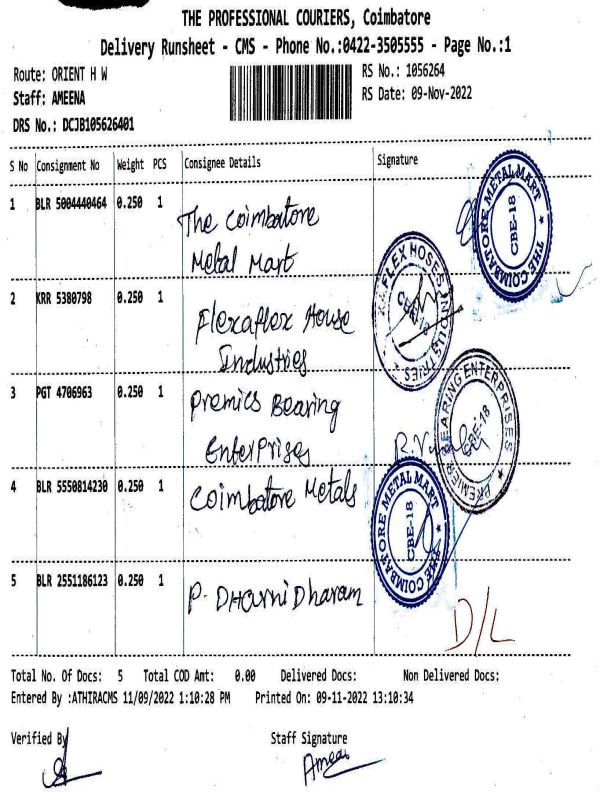 THE PROFESSIONAL COURIERS, Coimbatore
Delivery Runsheet - CMS - Phone No.:0422-3505555 - Page No.:1
Route: ORIENT H W
RS No.: 1056264
Staff: AMEENA
RS Date: 09-Nov-2022
DRS No.: DCJB105626401
S No Consignment No Weight PCS Consignee Details Signature
1 BLR 5004440464 0.250 1 The Coimbatore
Metal Mart
THE COIMBATORE METAL MART
CBE-18
2 KRR 5380798 0.250 1 Flexaflex House
Industries
FLEX HOSES INDUSTRIES
3 PGT 4706963 0.250 1 Premics Bearing
Enterprises
PREMIER BEARING ENTERPRISES
CBE-18
4 BLR 5550814230 0.250 1 Coimbatore Metals
THE COIMBATORE METAL MART
CBE-18
5 BLR 2551186123 0.250 1 P. Dharni Dharam
D/L
Total No. Of Docs: 5 Total COD Amt: 0.00 Delivered Docs: Non Delivered Docs:
Entered By :ATHIRACMS 11/09/2022 1:10:28 PM Printed On: 09-11-2022 13:10:34
Verified By Staff Signature
Ameen